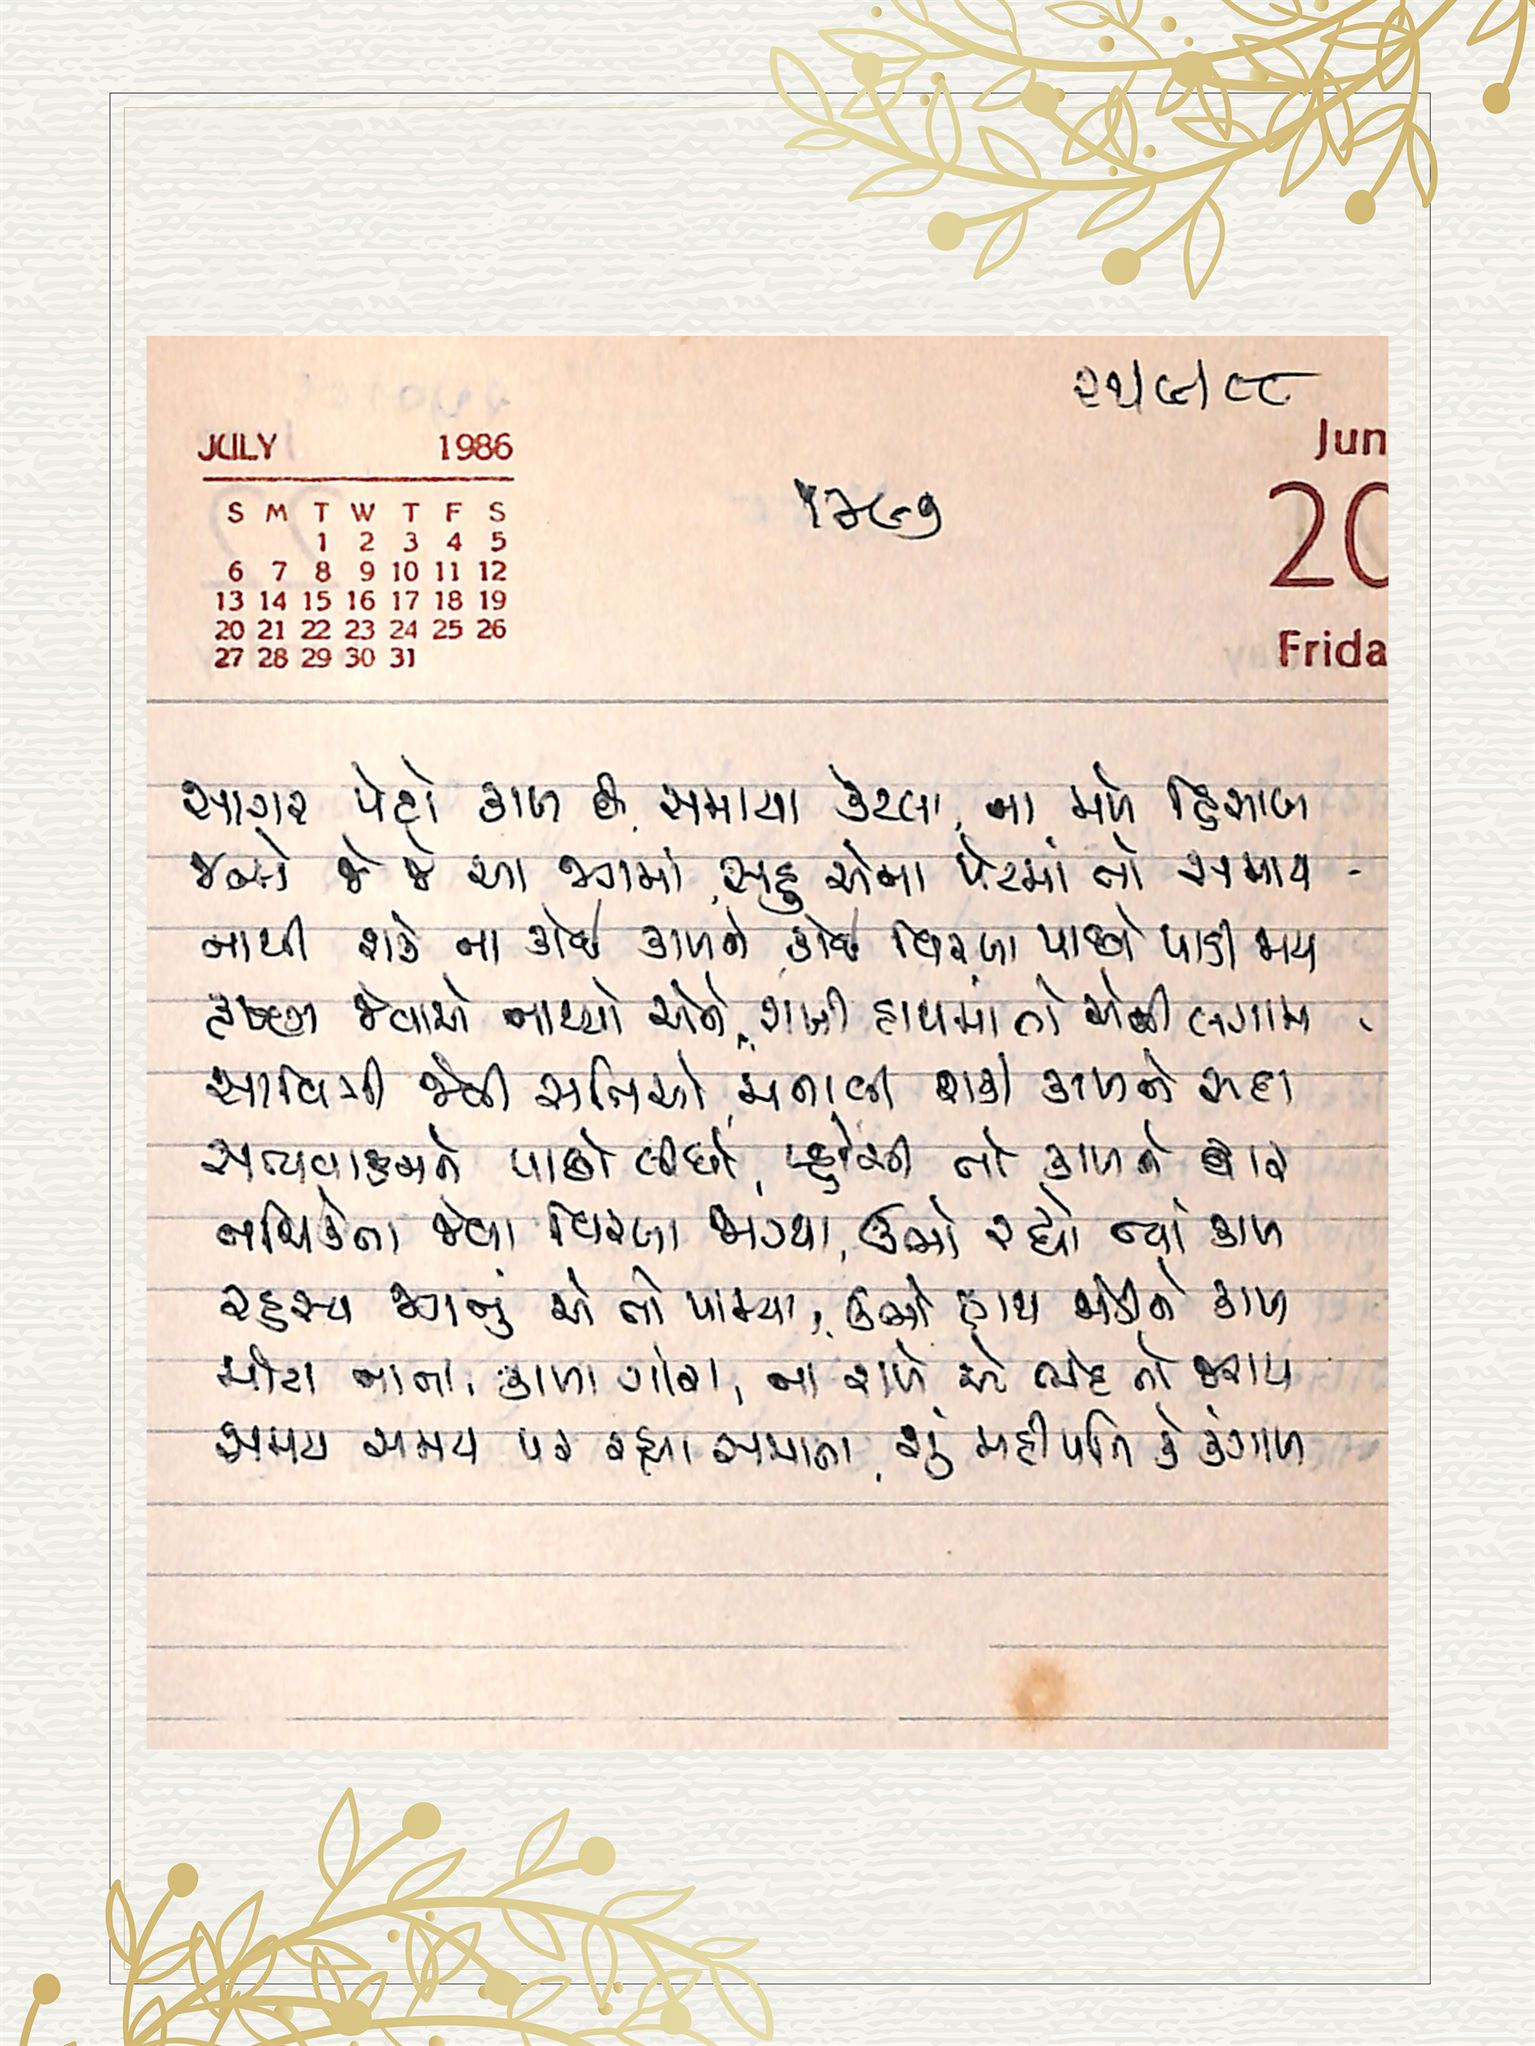 ૨૫/૯/૮૮
JULY 1986
Jun
S M T W T F S
1 2 3 4 5
6 7 8 9 10 11 12
13 14 15 16 17 18 19
20 21 22 23 24 25 26
27 28 29 30 31
20
Frida
સાગર પેટો કાળ છે, સમાયા કેટલા, ના મળે હિસાબ
જન્મે જે જે આ જગમાં, સહુ એના પેટમાં તો સમાય -
નાથી શકે ના કોઈ કાળને, કોઈ વિરલા પાછો પાડી જાય
કૃષ્ણ જેવાએ નાથ્યો એને, રાખી હાથમાં તો એની લગામ
સાવિત્રી જેવી સતિઓ, મનાવી શકી કાળને સદા
સત્યવાનને પાછો લીધો, પ્હોંચી તો કાળને દ્વાર
નચિકેતા જેવા વિરલા જાગ્યા, ઊભો રહ્યો ત્યાં કાળ
રહસ્ય જગનું એ તો પામ્યા, ઊભો હાથ જોડીને કાળ
મોટા નાના, કાળા ગોરા, ના રાખે એ ભેદ તો જરાય
સમય સમય પર રહ્યા સમાતા, શું મહીપતિ કે કંગાળ